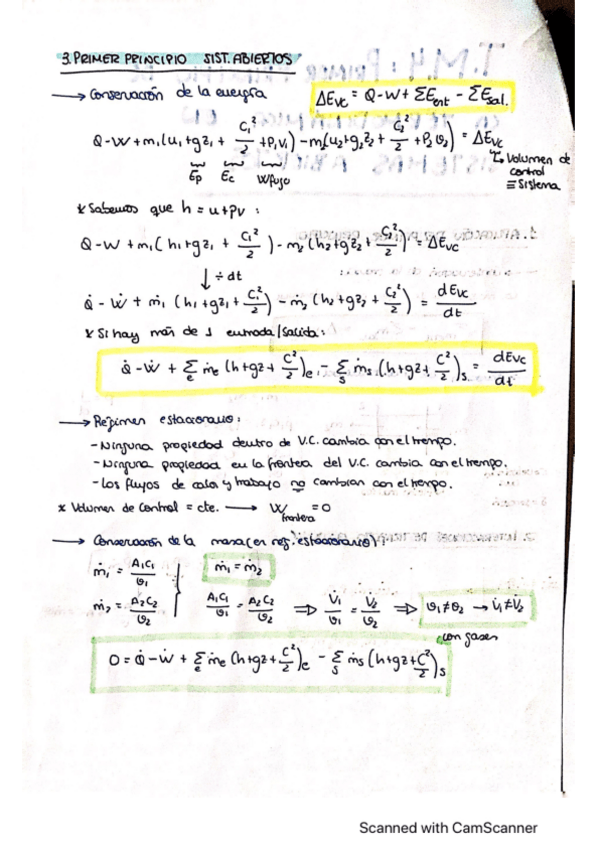 3. PRIMER PRINCIPIO SIST. ABIERTOS
→ Conservación de la energía
ΔEvc = Q-W + ΣEent - ΣEsal.
Q-W+m₁(u₁+gz₁+C₁²/2+p₁v₁)-m₂(u₂+gz₂+C₂²/2+p₂v₂) = ΔEvc
Ep Ec Wflujo
↳ Volumen de control ≡ Sistema
* Sabemos que h = u+pv :
Q-W+m₁(h₁+gz₁+C₁²/2)-m₂(h₂+gz₂+C₂²/2) = ΔEvc
↓ ÷ dt
Q̇ - Ẇ + ṁ₁ (h₁+gz₁+C₁²/2) - ṁ₂ (h₂+gz₂+C₂²/2) = dEvc/dt
* Si hay más de 1 entrada/salida:
Q̇-Ẇ + Σe ṁe (h+gz+C²/2)e - Σs ṁs (h+gz+C²/2)s = dEvc/dt
→ Régimen estacionario:
- Ninguna propiedad dentro de V.C. cambia con el tiempo.
- Ninguna propiedad en la frontera del V.C. cambia con el tiempo.
- Los flujos de calor y trabajo no cambian con el tiempo.
* Volumen de Control = cte. → Wfrontera = 0
→ Conservación de la masa (en reg. estacionario):
ṁ₁ = A₁C₁/v₁
ṁ₁ = ṁ₂
ṁ₂ = A₂C₂/v₂
A₁C₁/v₁ = A₂C₂/v₂ ⇒ V̇₁/v₁ = V̇₂/v₂ ⇒ v₁≠v₂ → V̇₁≠V̇₂
con gases
0 = Q̇-Ẇ + Σe ṁe (h+gz+C²/2)e - Σs ṁs (h+gz+C²/2)s
Scanned with CamScanner